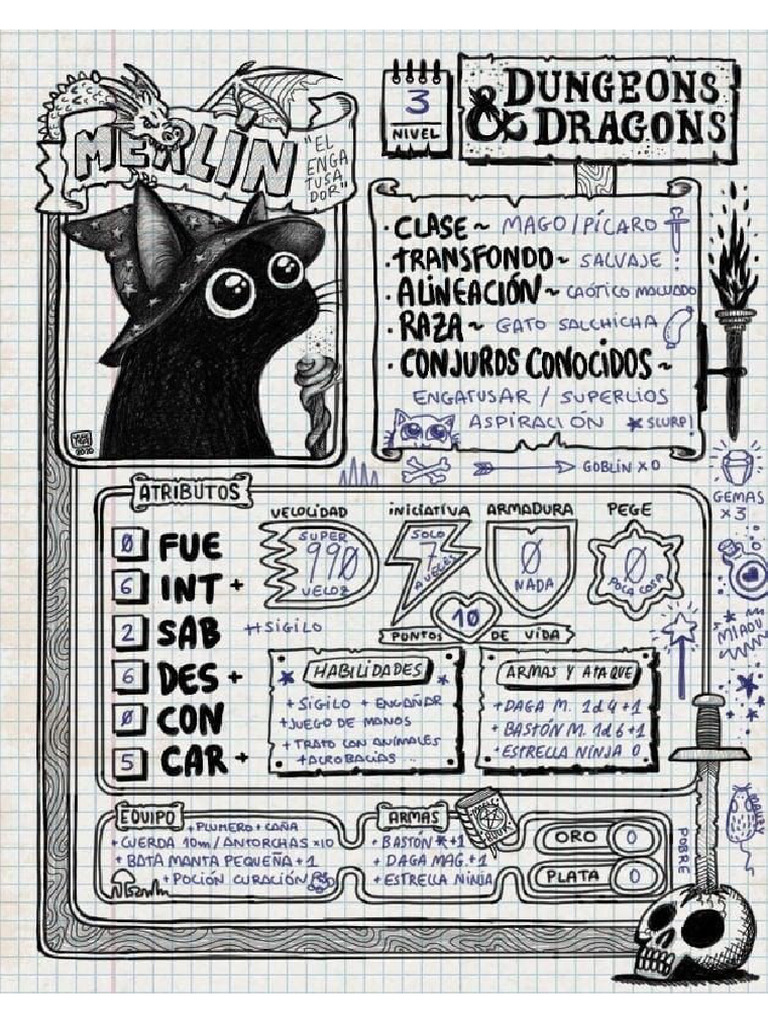 MERLÍN
"EL
ENGA
TUSA
DOR"
3
NIVEL
DUNGEONS
& DRAGONS
· CLASE ~ MAGO/PÍCARO
· TRANSFONDO ~ SALVAJE !
· ALINEACIÓN ~ CAÓTICO MALVADO
· RAZA ~ GATO SALCHICHA
· CONJUROS CONOCIDOS ~
ENGATUSAR / SUPERLIOS
ASPIRACIÓN * SLURP!
2020
GOBLIN x0
GEMAS
x3
ATRIBUTOS
0 FUE
6 INT +
2 SAB
6 DES +
0 CON
5 CAR +
VELOCIDAD
SUPER
990
VELOZ
+SIGILO
INICIATIVA
SOLO
7
A VECES
ARMADURA
0
NADA
PEGE
0
POCA COSA
10
PUNTOS DE VIDA
MIAOU
HABILIDADES
+ SIGILO + ENGAÑAR
+ JUEGO DE MANOS
+ TRATO CON ANIMALES
+ ACROBACIAS
ARMAS Y ATAQUE
+ DAGA M. 1d4+1
+ BASTÓN M. 1d6+1
+ ESTRELLA NINJA 0
EQUIPO
+ PLUMERO + CAÑA
+ CUERDA 10m / ANTORCHAS x10
+ BATA MANTA PEQUEÑA +1
+ POCIÓN CURACIÓN
ARMAS
+ BASTÓN * +1
+ DAGA MAG. +1
+ ESTRELLA NINJA
ORO 0
PLATA 0
POBRE